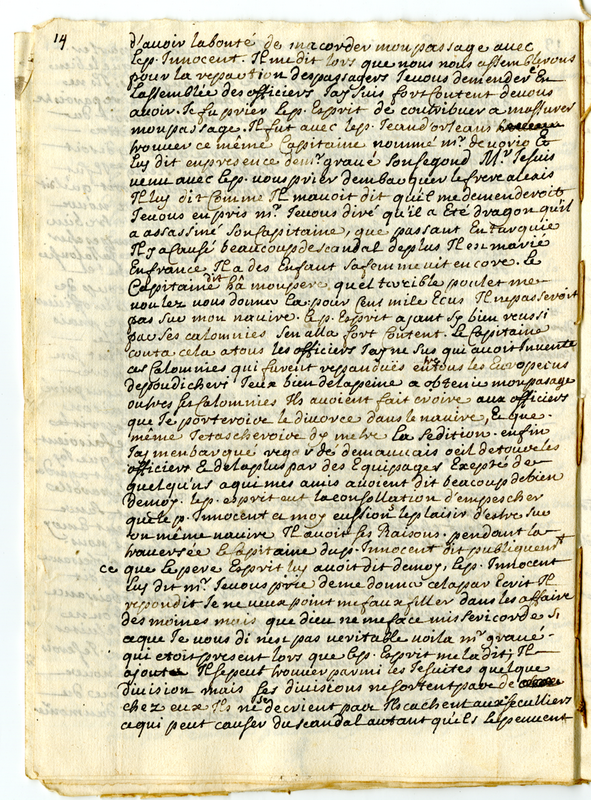 14
d'avoir labonté de macorder mon passage avec
lep. Innocent. Il me dit lors que nous nous assemblerons
pour la repartion des passagers Je vous demender En
lassemblée des officiers Jay suis fort Content de vous
avoir. Je fu prier lep. Esprit de contribuer a massurer
mon passage. Il fut avec lep. Jean d'orleans
trouver ce même Capitaine nommé mr. de
luy dit en presence de mr. gravé son segond Mr. Je suis
venu avec lep. vous prier dembarquer le frere alexis
Il luy dit Comme Il mavoit dit quil me demenderoit
Je vous en pris mr. Je vous diré qu'il a Eté dragon qu'il
a assassiné son Capitaine, que passant En turquie
Il y a Causé beaucoup de scandal de plus Il est marié
En france Il a des Enfant sa femme vit encore. le
Capitaine dit hâ mon pere, quel terrible poulet me
voulez vous donner la pour Cent mile Ecus Il ne passeroit
pas sur mon navire. lep. Esprit ajant sy bien reussi
par ses calomnies sen alla fort Content. le Capitaine
conta cela a tous les officiers Jay ne sus qui avoit Inventé
ces Calomnies qui furent repandues entre tous les Europeens
de pondichery Jeux bien de la peine a obtenir mon pasage
outre ses Calomnies Ils avoient fait croire aux officiers
que Je porterois le divorce dans le navire, & que
même Je tascherois dy metre la sedition. enfin
Jay m'embarque regardé de mauvais oeil de tous les
officiers & de la plus par des Equipages Exepté de
quelqu'uns a qui mes amis avoient dit beaucoup de bien
de moy. lep. esprit eut la consollation d'empescher
que le p. Innocent et moy eussion le plaisir d'estre sur
un même navire Il avoit ses Raisons. pendant la
traversée le Capitaine dup. Innocent dit publiquent
ce que le pere Esprit luy avoit dit de moy, lep. Innocent
luy dit mr. Je vous prie de me donner cela par Ecrit Il
repondit Je ne veux point me faux filler dans les affaire
des moines mais que dieu ne me face misericorde si
ce que Je vous di n'est pas veritable voila mr. gravé
qui etoit present lors que lep. Esprit me la dit; Il
ajouta Il se peut trouver parmi les Jesuites quelque
division mais ses divisions ne sortent pas de
chez eux Ils ne se decrient pas Ils cachent aux seculliers
ce qui peut causer du scandal autant qu'ils le peuvent